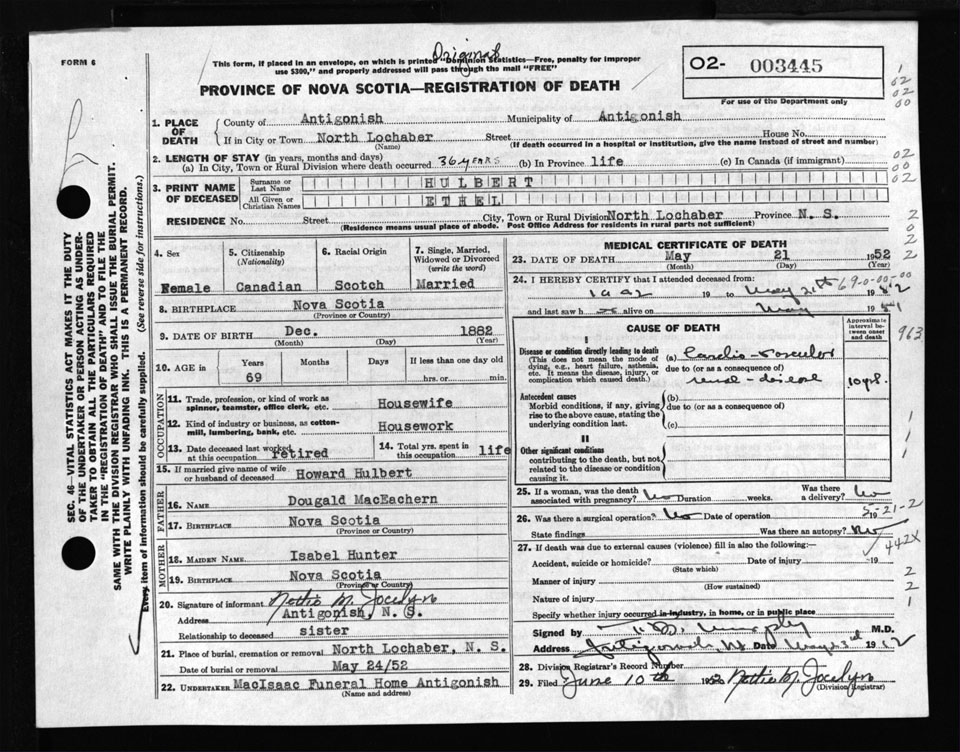 FORM 6
Original
This form, if placed in an envelope, on which is printed "Dominion Statistics—Free, penalty for improper
use $300," and properly addressed will pass through the mail "FREE"
O2- 003445
For use of the Department only
PROVINCE OF NOVA SCOTIA—REGISTRATION OF DEATH
1. PLACE OF DEATH
County of Antigonish Municipality of Antigonish
If in City or Town North Lochaber Street House No.
(Name) (If death occurred in a hospital or institution, give the name instead of street and number)
2. LENGTH OF STAY (in years, months and days)
(a) In City, Town or Rural Division where death occurred 36 years (b) In Province life (c) In Canada (if immigrant)
3. PRINT NAME OF DECEASED
Surname or Last Name HULBERT
All Given or Christian Names ETHEL
RESIDENCE No. Street City, Town or Rural Division North Lochaber Province N. S.
(Residence means usual place of abode. Post Office Address for residents in rural parts not sufficient)
4. Sex Female
5. Citizenship (Nationality) Canadian
6. Racial Origin Scotch
7. Single, Married, Widowed or Divorced (write the word) Married
8. BIRTHPLACE Nova Scotia
(Province or Country)
9. DATE OF BIRTH Dec. 1882
(Month) (Day) (Year)
10. AGE in Years Months Days If less than one day old
69 hrs. or min.
OCCUPATION
11. Trade, profession, or kind of work as spinner, teamster, office clerk, etc. Housewife
12. Kind of industry or business, as cotton-mill, lumbering, bank, etc. Housework
13. Date deceased last worked at this occupation retired
14. Total yrs. spent in this occupation life
15. If married give name of wife or husband of deceased Howard Hulbert
FATHER
16. NAME Dougald MacEachern
17. BIRTHPLACE Nova Scotia
(Province or Country)
MOTHER
18. MAIDEN NAME Isabel Hunter
19. BIRTHPLACE Nova Scotia
(Province or Country)
20. Signature of informant Nettie M. Jocelyn
Address Antigonish, N. S.
Relationship to deceased sister
21. Place of burial, cremation or removal North Lochaber, N. S.
Date of burial or removal May 24/52
22. UNDERTAKER MacIsaac Funeral Home Antigonish
(Name and address)
MEDICAL CERTIFICATE OF DEATH
23. DATE OF DEATH May 21 1952
(Month) (Day) (Year)
24. I HEREBY CERTIFY that I attended deceased from:
19 to May 21st 19
69-0-00-00
and last saw h alive on May 19
CAUSE OF DEATH
Approximate interval between onset and death
I
Disease or condition directly leading to death
(This does not mean the mode of dying, e.g., heart failure, asthenia, etc. It means the disease, injury, or complication which caused death.)
(a) Cardio-vascular
due to (or as a consequence of)
renal-disease 10 yrs.
Antecedent causes
Morbid conditions, if any, giving rise to the above cause, stating the underlying condition last.
(b)
due to (or as a consequence of)
(c)
II
Other significant conditions
contributing to the death, but not related to the disease or condition causing it.
25. If a woman, was the death associated with pregnancy? No Duration weeks. Was there a delivery? No
26. Was there a surgical operation? No Date of operation 19
5-21-2
State findings Was there an autopsy? No
442X
27. If death was due to external causes (violence) fill in also the following:—
Accident, suicide or homicide? Date of injury 19
(State which)
Manner of injury
(How sustained)
Nature of injury
Specify whether injury occurred in industry, in home, or in public place
Signed by Murphy M.D.
Address Antigonish, Date May 19
28. Division Registrar's Record Number
29. Filed June 10th 195 Nettie M. Jocelyn
(Division Registrar)
963
SEC. 46—VITAL STATISTICS ACT MAKES IT THE DUTY
OF THE UNDERTAKER OR PERSON ACTING AS UNDER-
TAKER TO OBTAIN ALL THE PARTICULARS REQUIRED
IN THE "REGISTRATION OF DEATH" AND TO FILE THE
SAME WITH THE DIVISION REGISTRAR WHO SHALL ISSUE THE BURIAL PERMIT.
WRITE PLAINLY WITH UNFADING INK. THIS IS A PERMANENT RECORD.
Every item of information should be carefully supplied. (See reverse side for instructions.)
1
02
02
00
02
00
02
2
0
2
2
1
1
1
2
2
1